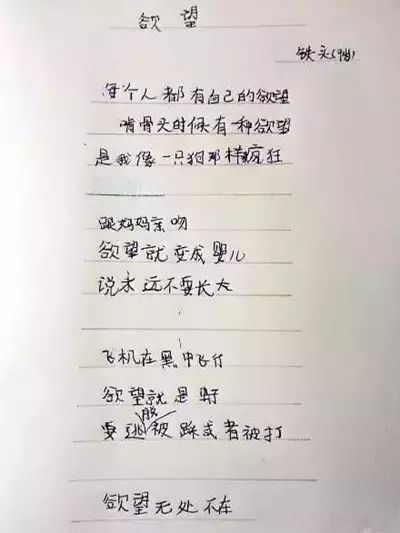 欲望
铁头(9岁)
每个人都有自己的欲望
啃骨头时候有一种欲望
是我像一只狗那样疯狂
跟妈妈亲吻
欲望就变成婴儿
说永远不要长大
飞机在黑中飞行
欲望就是
要逃脱被踩或者被打
欲望无处不在